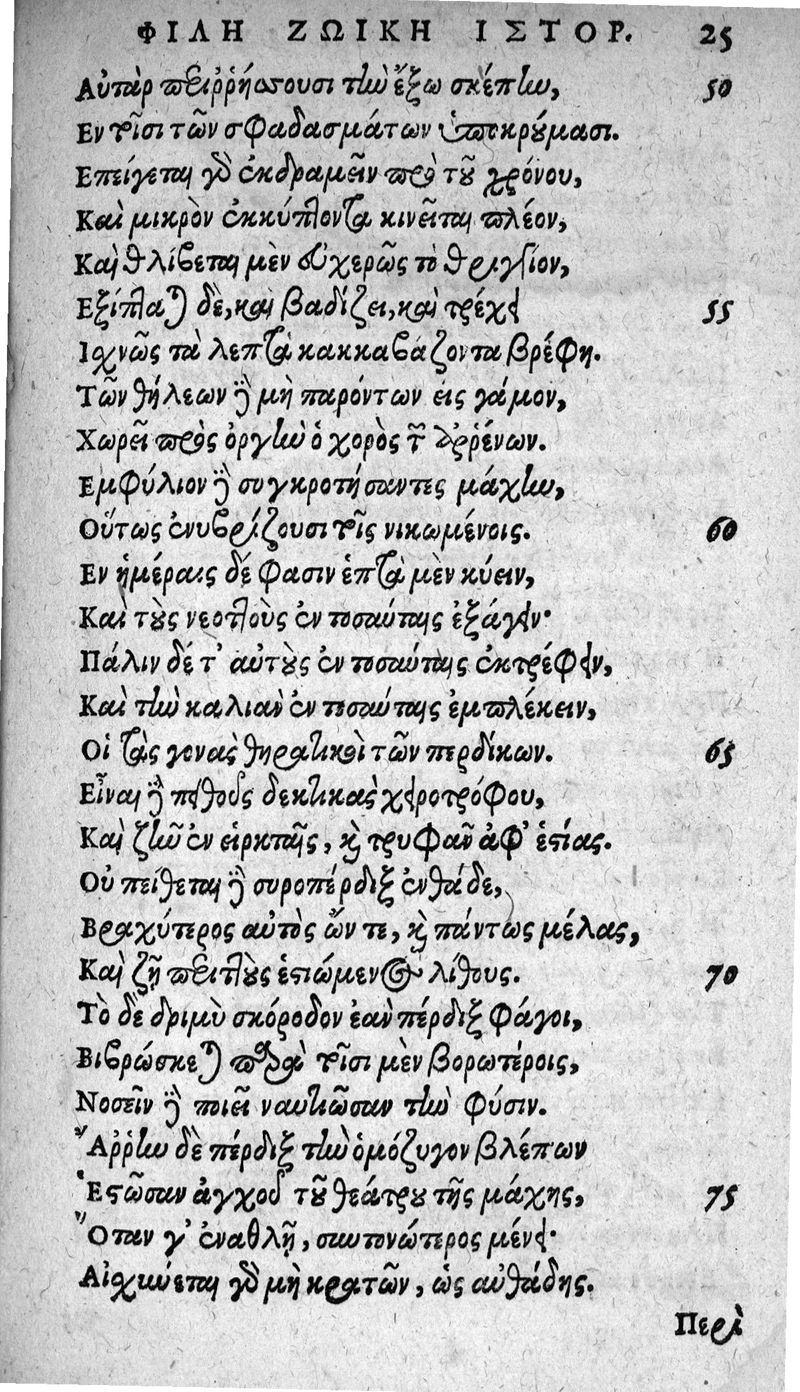 ΦΙΛΗ ΖΩΙΚΗ ΙΣΤΟΡ. 25
Αὐτὰρ περιῤῥήσσουσι τὴν ἔξω σκέπην, 50
Εν τοῖσι τῶν σφαδασμάτων ὑποκρύμασι.
Επείγεται γὸ ἐκδραμεῖν πρὸ τοῦ χρόνου,
Καὶ μικρὸν ἐκκύπτοντα κινεῖται πλέον,
Καὶ θλίβεται μὲν δυχερῶς τὸ θριγγίον,
Εξίπταται δὲ, καὶ βαδίζει, καὶ τρέχει 55
Ιχνῶς τὰ λεπτὰ κακκαβάζοντα βρέφη.
Τῶν θήλεων δὲ μὴ παρόντων εἰς γάμον,
Χωρεῖ πρὸς ὀργὴν ὁ χορὸς τῶν ἀῤῥένων.
Εμφύλιον δὲ συγκροτήσαντες μάχην,
Οὕτως ἐνυβρίζουσι τοῖς νικωμένοις. 60
Εν ἡμέραις δέ φασιν ἑπτὰ μὲν κύειν,
Καὶ τοὺς νεοττοὺς ἐν τοσαύταις ἐξάγειν·
Πάλιν δέ τ' αὐτοὺς ἐν τοσαύταις ἐκτρέφειν,
Καὶ τὴν καλιὰν ἐν τοσαύταις ἐμπλέκειν,
Οἱ τὰς γονὰς θηρατικοὶ τῶν περδίκων. 65
Εἶναι δὲ πειθοῦς δεκτικὰς χειροτρόφου,
Καὶ ζῆν ἐν εἱρκταῖς, καὶ τρυφᾶν ἀφ' ἑστίας.
Οὐ πείθεται δὲ συροπέρδιξ ἐνθάδε,
Βραχύτερος αὐτὸς ὤν τε, καὶ πάντως μέλας,
Καὶ ζῇ περιττοὺς ἑστιώμενος λίθους. 70
Τὸ δὲ δριμὺ σκόροδον ἐὰν πέρδιξ φάγοι,
Βιβρώσκεται παρὰ τοῖσι μὲν βορωτέροις,
Νοσεῖν δὲ ποιεῖ ναυτιῶσαν τὴν φύσιν.
Ἄῤῥην δὲ πέρδιξ τὴν ὁμόζυγον βλέπων
Ἑστῶσαν ἀγχοῦ τοῦ θεάτρου τῆς μάχης, 75
Ὅταν γ' ἐναθλῇ, σαυτονώτερος μένει·
Αἰσχύνεται γὸ μὴ κρατῶν, ὡς αὐθάδης.
Περὶ